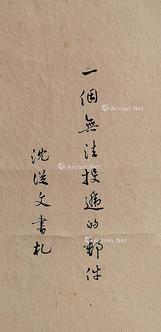 一個無法投遞的郵件
沈從文書札
Artron.Net
Artron.Net